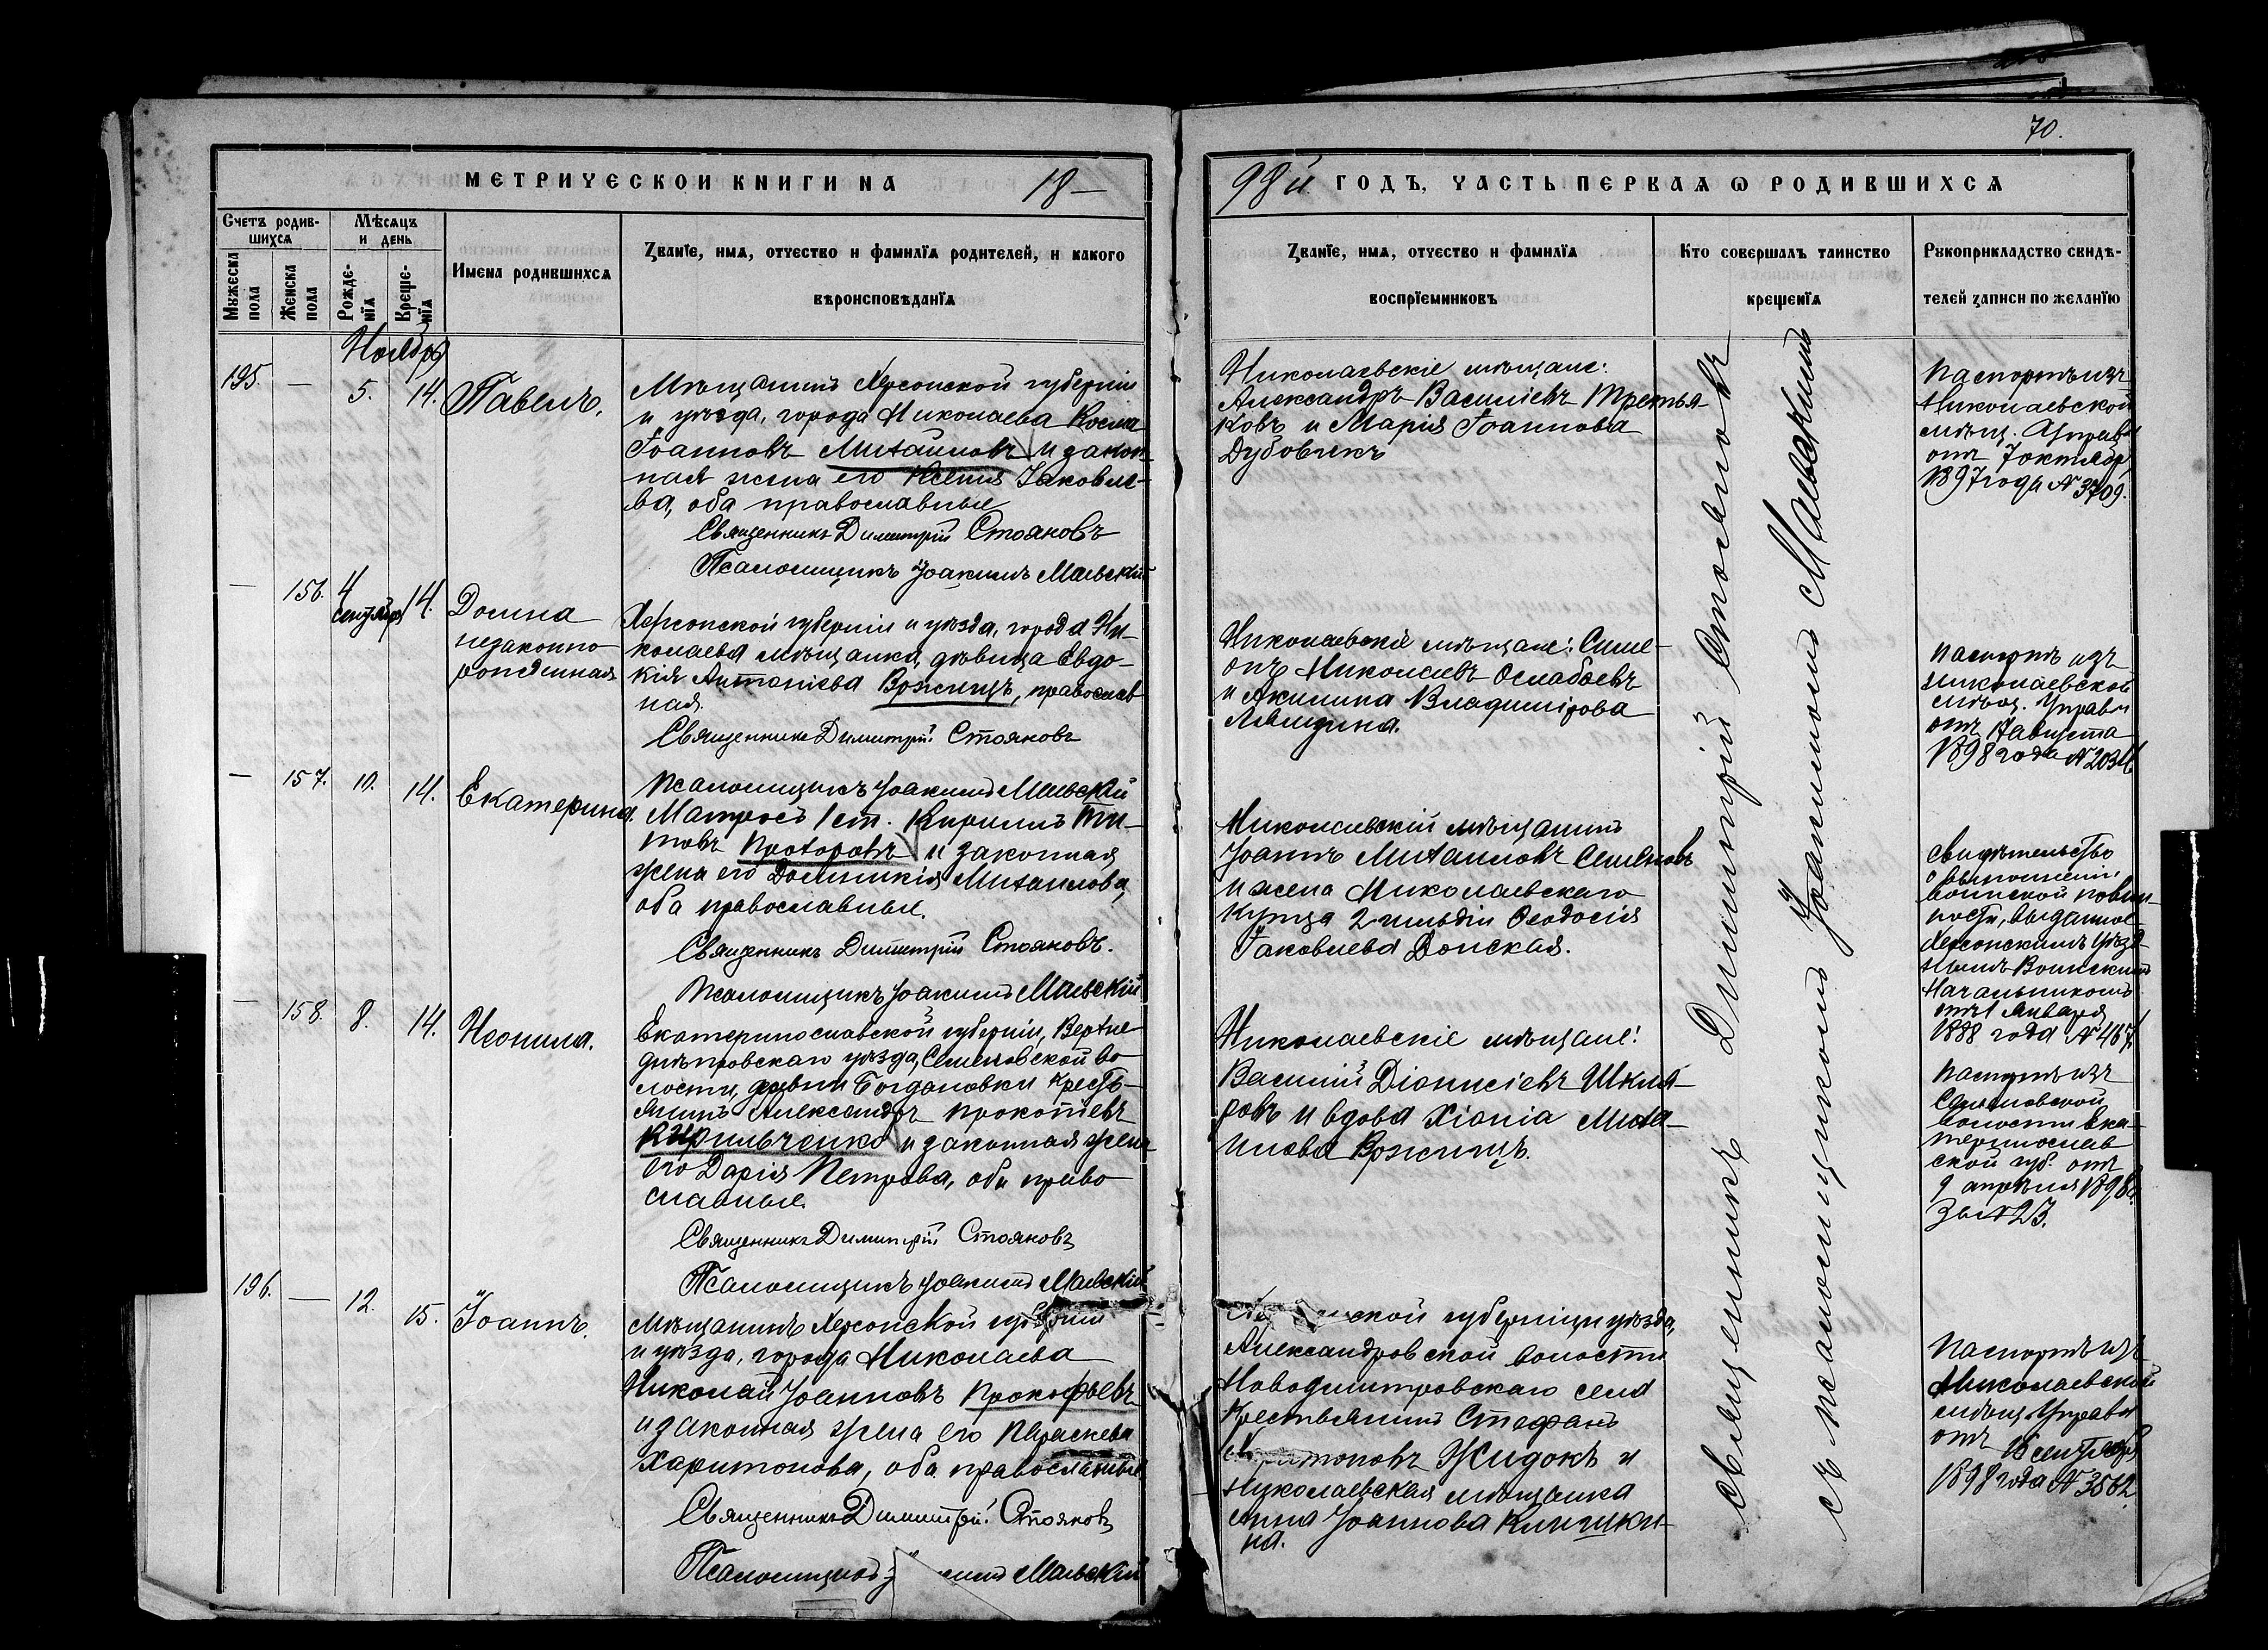 70.
МЕТРИЧЕСКОЙ КНИГИ НА 18—
98й ГОДЪ, ЧАСТЬ ПЕРВАЯ Ѡ РОДИВШИХСЯ
Счетъ родив-
шихся
Мѣсяцъ
и день
Мужеска
пола
Женска
пола
Рожде-
нїя
Креще-
нїя
Имена родившихся
Званїе, имя, отчество и фамилїя родителей, и какого
вѣроисповѣданїя
Званїе, имя, отчество и фамилїя
воспрїемниковъ
Кто совершалъ таинство
крещенїя
Рукоприкладство свидѣ-
телей записи по желанїю
Ноябрь
195. — 5. 14. Павелъ.
Мѣщанинъ Херсонской губерніи
и уѣзда, города Николаева Косма
Іоанновъ Михайловъ и закон-
ная жена его Ксенія Іаковле-
ва, оба православные
Священникъ Димитрій Стояновъ
Псаломщикъ Іоакимъ Маевскій
Николаевскіе мѣщане:
Александръ Василіевъ Третья-
ковъ и Марія Іоаннова
Дубовикъ
Паспортъ изъ
Николаевской
мѣщ. Управы
отъ 7 октября
1897 года № 3709.
— 156. 4
сентября 14. Домна
незаконно
рожденная
Херсонской губерніи и уѣзда, города Ни-
колаева мѣщанка, дѣвица Евдо-
кія Антоніева Вржещъ, православ
ная.
Священникъ Димитрій Стояновъ
Псаломщикъ Іоакимъ Маевскій
Николаевскіе мѣщане: Симе-
онъ Николаевъ Ослабаевъ
и Акилина Владимірова
Паспортъ изъ
николаевской
мѣщ. Управы
отъ августа
1898 года
— 157. 10. 14. Екатерина.
Матросъ 1 ст. Кириллъ Ти-
товъ Прохоровъ и законная
жена его Домникія Михаилова,
оба православные.
Священникъ Димитрій Стояновъ.
Псаломщикъ Іоакимъ Маевскій
Николаевскій мѣщанинъ
Іоаннъ Михаиловъ Семеновъ
и жена Николаевскаго
купца 2 гильдіи Ѳеодосія
Іаковлева Донская.
Свидѣтельство
о выполненіи
воинской повин-
ности, выданное
Херсонскимъ Уѣзд-
нымъ Воинскимъ
Начальникомъ
отъ 1 Января
1888 года № 467.
— 158. 8. 14. Неонила.
Екатеринославской губерніи, Верхне-
днѣпровскаго уѣзда, Семеновской во
лости, дервни Богдановки кресть-
янинъ Александръ Прокопіевъ
Кирильченко и законная жена
его Дарія Петрова, оба право
славные.
Священникъ Димитрій Стояновъ
Псаломщикъ Іоакимъ Маевскій
Николаевскіе мѣщане:
Василій Діонисіевъ Шкля-
ровъ и вдова Хіонія Миха-
илова Вржещъ.
Паспортъ изъ
Семеновской
волости Ека-
теринослав
ской губ. отъ
9 апрѣля 1898 г.
за № 23.
196. — 12. 15. Іоаннъ.
Мѣщанинъ Херсонской губерніи
и уѣзда, города Николаева
Николай Іоанновъ Прокофьевъ
и законная жена его Параскева
Харитонова, оба православные
Священникъ Димитрій Стояновъ
Псаломщикъ Маевскій
губерніи и уѣзда,
Александровской волости
Новодмитровскаго села
крестьянинъ Стефанъ
Харитоновъ Жидокъ и
николаевская мѣщанка
Анна Іоаннова Клишки-
на.
Паспортъ изъ
Николаевской
мѣщ. Управы
отъ сентября
1898 года № 3562.
Священникъ Димитрій Стояновъ
съ псаломщикомъ Іоакимомъ Маевскимъ